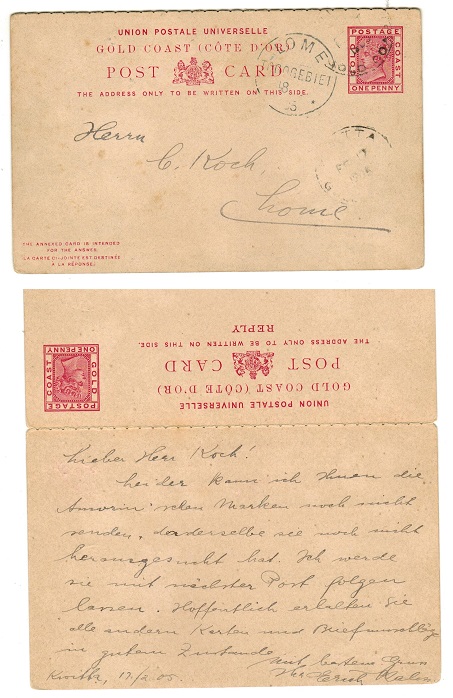 UNION POSTALE UNIVERSELLE
GOLD COAST (CÔTE D'OR)
POST CARD
THE ADDRESS ONLY TO BE WRITTEN ON THIS SIDE.
POSTAGE
GOLD
COAST
ONE PENNY
LOME
TOGOGEBIET
18
Herrn
C. Koch,
Lome
THE ANNEXED CARD IS INTENDED
FOR THE ANSWER.
(LA CARTE CI-JOINTE EST DESTINÉE
À LA RÉPONSE)
UNION POSTALE UNIVERSELLE
GOLD COAST (CÔTE D'OR)
POST CARD
THE ADDRESS ONLY TO BE WRITTEN ON THIS SIDE.
REPLY
POSTAGE
GOLD
COAST
ONE PENNY
Lieber Herr Koch!
Leider kann ich Ihnen die
Amorin'schen Marken noch nicht
senden, da derselbe sie noch nicht
herausgesucht hat. Ich werde
sie mit nächster Post folgen
lassen. Hoffentlich erhalten Sie
alle andern Karten und Briefumschläge
in gutem Zustande.
Mit bestem Gruss
Ihr Erich
Kwitta, 17/2 05